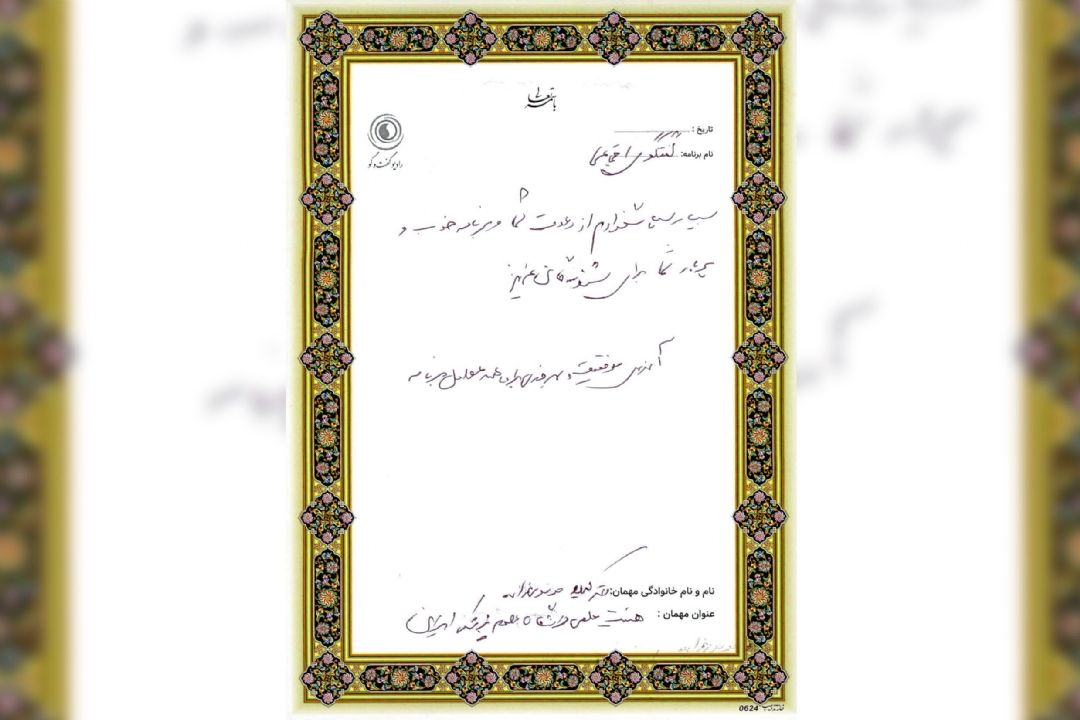 باسمه تعالی
رادیو گفت‌وگو
تاریخ :
نام برنامه: گفتگوی اجتماعی
بسیار سپاسگزارم از دعوت شما و برنامه خوب و
پربار شما برای شنوندگان عزیز
آرزوی موفقیت و بهروزی برای همه عوامل برنامه
نام و نام خانوادگی مهمان: دکتر
عنوان مهمان : هیئت علمی دانشگاه علوم پزشکی ایران
0624